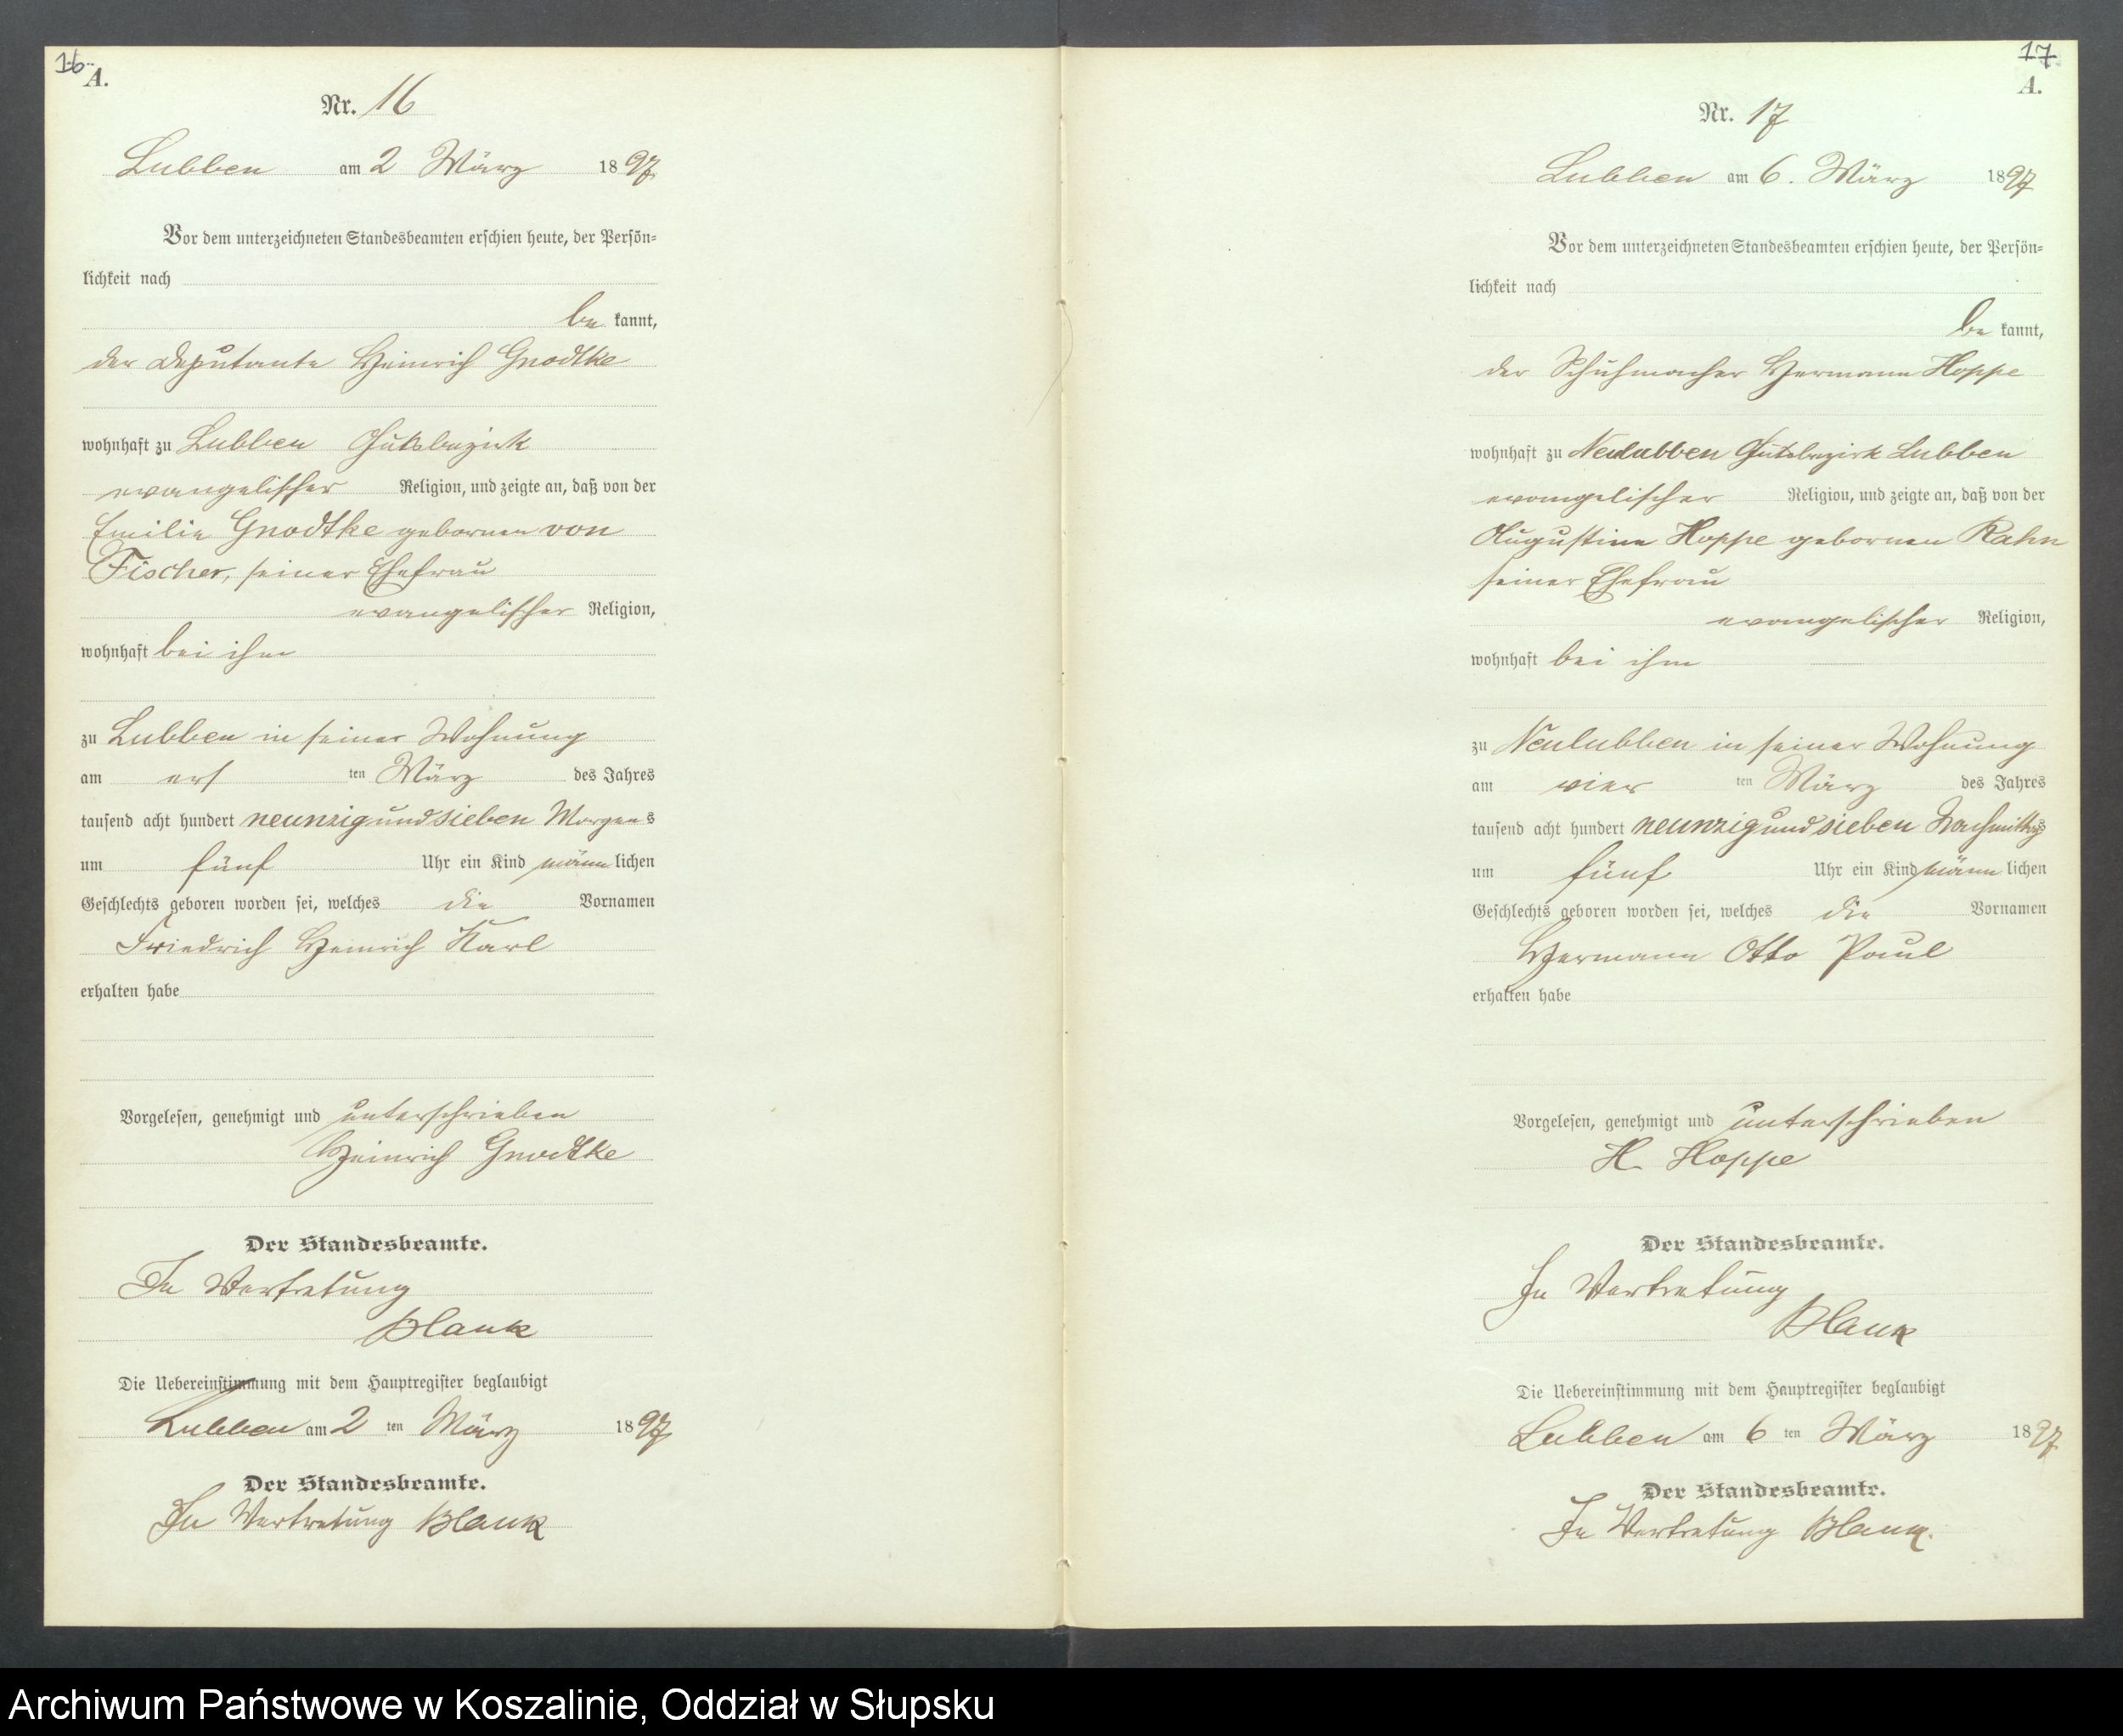 16
A.
Nr. 16
Lubben am 2 März 1897
Vor dem unterzeichneten Standesbeamten erschien heute, der Persön-
lichkeit nach
be kannt,
der Deputante Heinrich Gnodtke
wohnhaft zu Lubben Gutsbezirk
evangelischer Religion, und zeigte an, daß von der
Emilie Gnodtke gebornen von
Fischer, seiner Ehefrau
evangelischer Religion,
wohnhaft bei ihm
zu Lubben in seiner Wohnung
am ers ten März des Jahres
tausend acht hundert neunzigundsieben Morgens
um fünf Uhr ein Kind männ lichen
Geschlechts geboren worden sei, welches die Vornamen
Friedrich Heinrich Karl
erhalten habe
Vorgelesen, genehmigt und unterschrieben
Heinrich Gnodtke
Der Standesbeamte.
In Vertretung
Blank
Die Uebereinstimmung mit dem Hauptregister beglaubigt
Lubben am 2 ten März 1897
Der Standesbeamte.
In Vertretung Blank
17
A.
Nr. 17
Lubben am 6. März 1897
Vor dem unterzeichneten Standesbeamten erschien heute, der Persön-
lichkeit nach
be kannt,
der Schuhmacher Hermann Hoppe
wohnhaft zu Neulubben Gutsbezirk Lubben
evangelischer Religion, und zeigte an, daß von der
Augustine Hoppe gebornen Rahn
seiner Ehefrau
evangelischer Religion,
wohnhaft bei ihm
zu Neulubben in seiner Wohnung
am vier ten März des Jahres
tausend acht hundert neunzigundsieben Nachmittags
um fünf Uhr ein Kind männ lichen
Geschlechts geboren worden sei, welches die Vornamen
Hermann Otto Paul
erhalten habe
Vorgelesen, genehmigt und unterschrieben
H. Hoppe
Der Standesbeamte.
In Vertretung
Blank
Die Uebereinstimmung mit dem Hauptregister beglaubigt
Lubben am 6 ten März 1897
Der Standesbeamte.
In Vertretung Blank.
Archiwum Państwowe w Koszalinie, Oddział w Słupsku